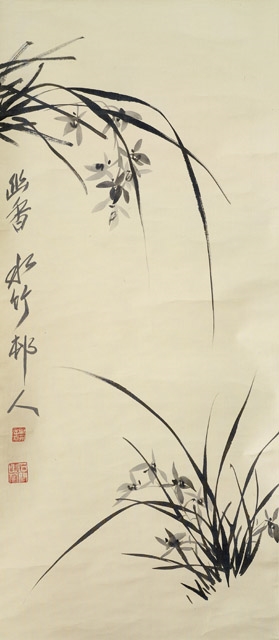 幽香
水竹邨人